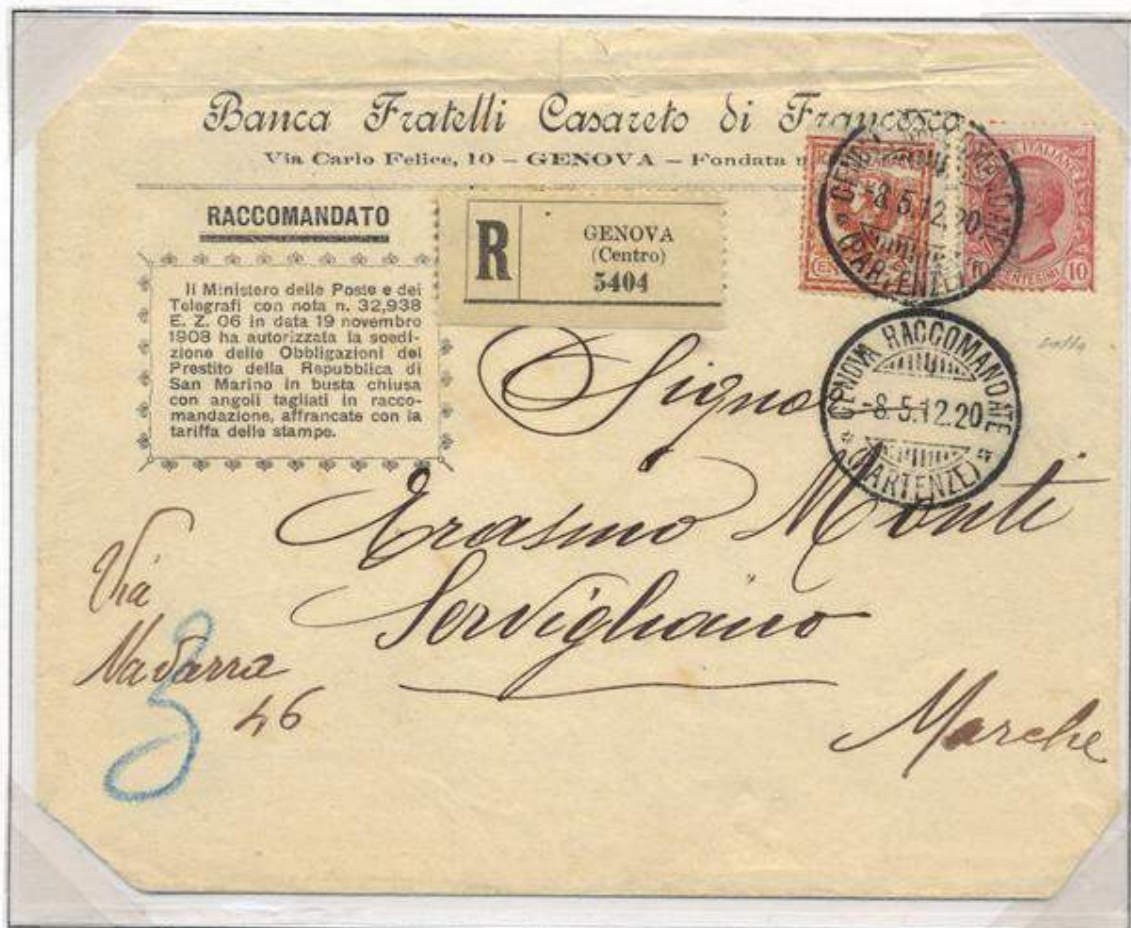 Banca Fratelli Casareto di Francesco
Via Carlo Felice, 10 – GENOVA – Fondata
RACCOMANDATO
Il Ministero delle Poste e dei
Telegrafi con nota n. 32,938
E. Z. 06 in data 19 novembre
1908 ha autorizzata la spedi-
zione delle Obbligazioni del
Prestito della Repubblica di
San Marino in busta chiusa
con angoli tagliati in racco-
mandazione, affrancate con la
tariffa delle stampe.
R
GENOVA
(Centro)
5404
GENOVA RACCOMANDATE
-8.5.12.20
(PARTENZE)
ITALIANE
10
GENOVA RACCOMANDATE
-8.5.12.20
(PARTENZE)
Signo
Erasmo Monti
Servigliano
Marche
Via
Navarra
46
3